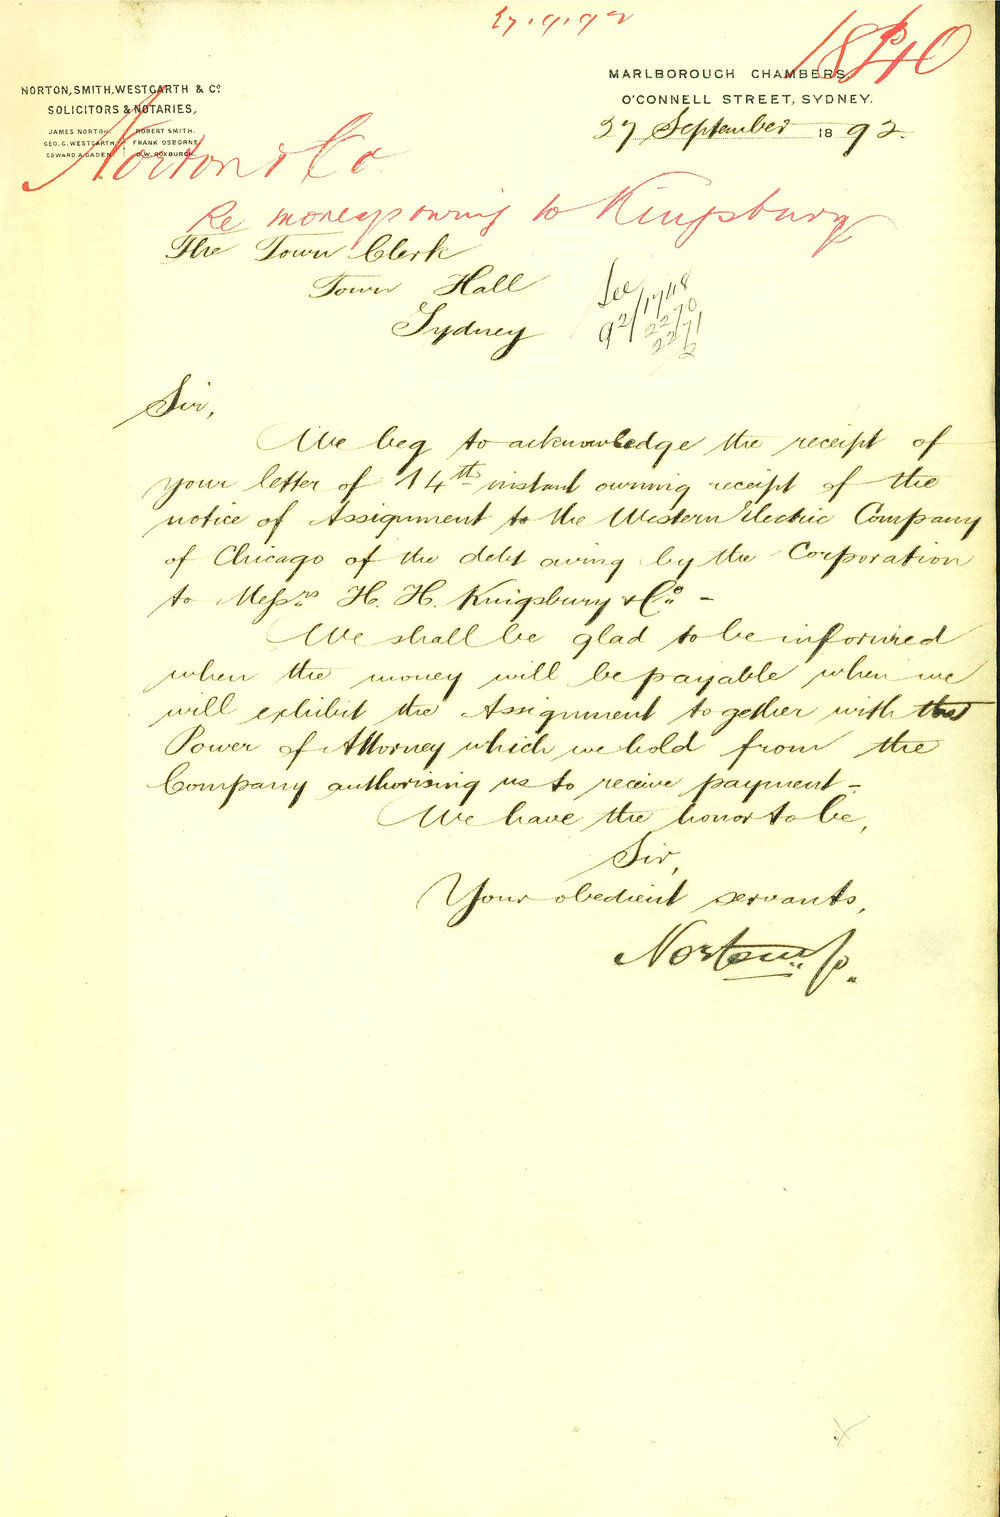 27.9.92
NORTON, SMITH, WESTGARTH & Co
SOLICITORS & NOTARIES,
JAMES NORTON. ROBERT SMITH.
GEO. C. WESTGARTH. FRANK OSBORNE
EDWARD A. GADEN. D.W. ROXBURGH.
MARLBOROUGH CHAMBERS,
O'CONNELL STREET, SYDNEY.
27 September 1892.
Norton & Co.
Re moneys owing to Kingsbury
The Town Clerk
Town Hall
Sydney
See
92/1748
2270
2271
2
Sir,
We beg to acknowledge the receipt of
your letter of 14th instant owning receipt of the
notice of Assignment to the Western Electric Company
of Chicago of the debt owing by the Corporation
to Messrs H. H. Kingsbury & Co. -
We shall be glad to be informed
when the money will be payable when we
will exhibit the Assignment together with the
Power of Attorney which we hold from the
Company authorising us to receive payment -
We have the honor to be,
Sir,
Your obedient servants,
Norton